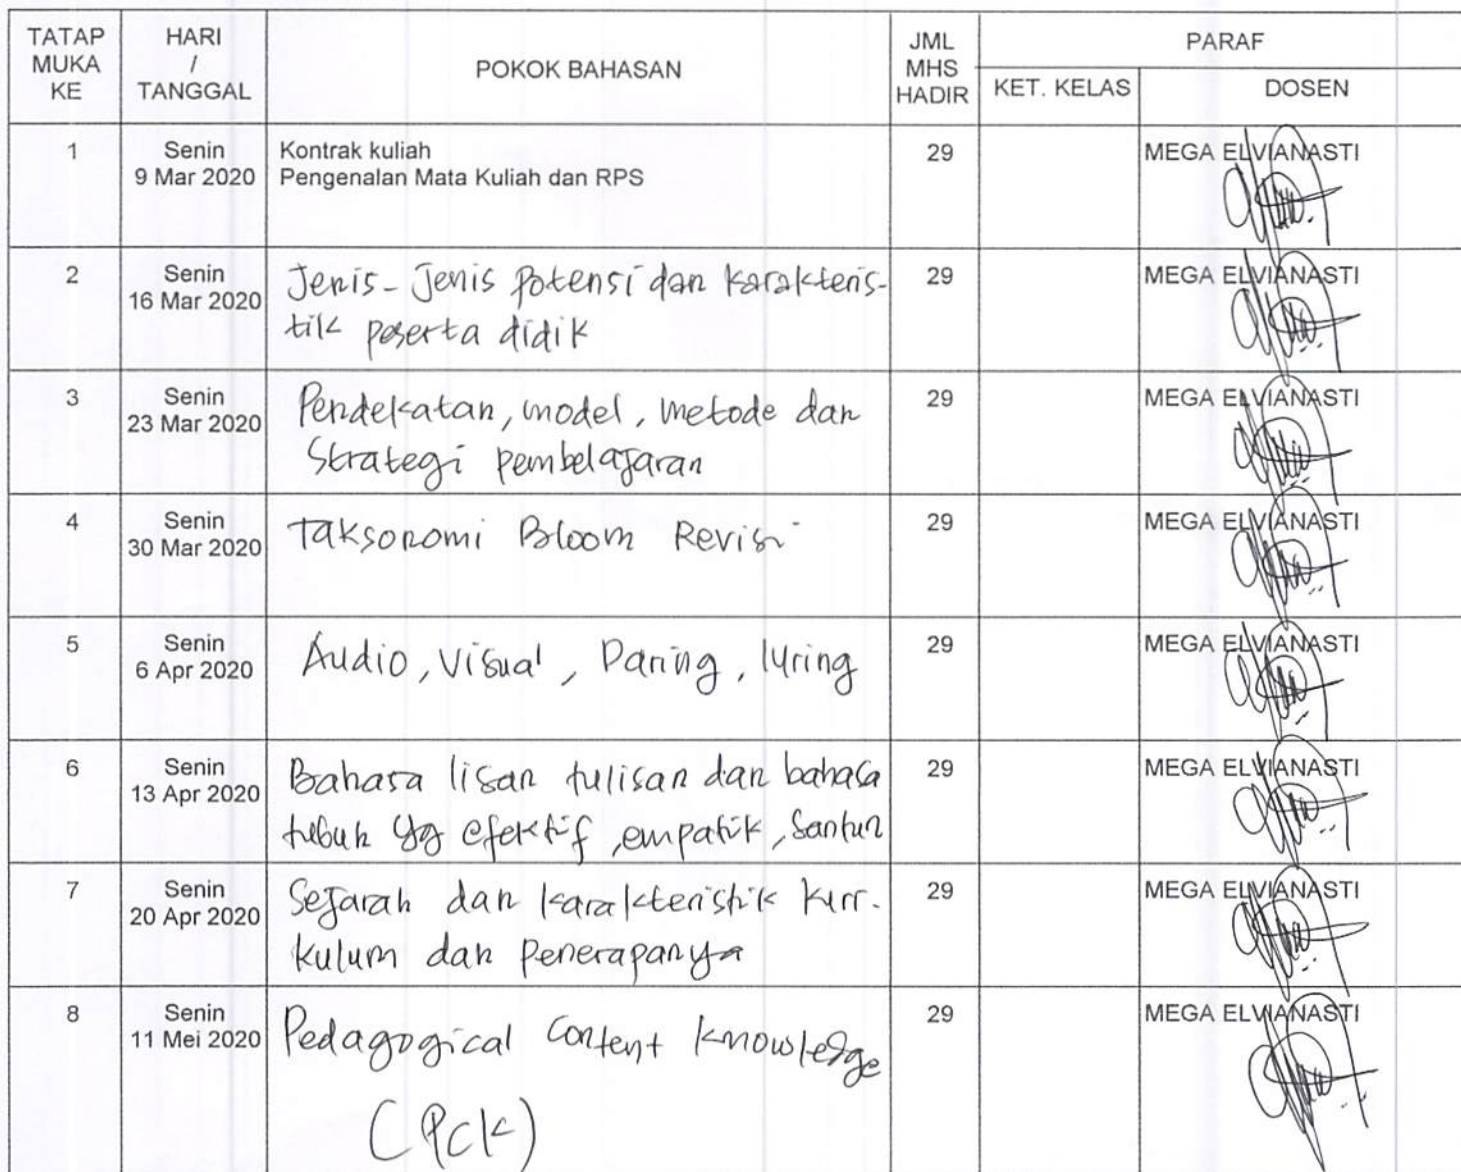 TATAP MUKA KE
HARI / TANGGAL
POKOK BAHASAN
JML MHS HADIR
PARAF
KET. KELAS
DOSEN
1
Senin
9 Mar 2020
Kontrak kuliah
Pengenalan Mata Kuliah dan RPS
29
MEGA ELVIANASTI
2
Senin
16 Mar 2020
Jenis-Jenis Potensi dan karakteris-
tik peserta didik
29
MEGA ELVIANASTI
3
Senin
23 Mar 2020
Pendekatan, model, metode dan
Strategi pembelajaran
29
MEGA ELVIANASTI
4
Senin
30 Mar 2020
Taksonomi Bloom Revisi
29
MEGA ELVIANASTI
5
Senin
6 Apr 2020
Audio, Visual, Daring, luring
29
MEGA ELVIANASTI
6
Senin
13 Apr 2020
Bahasa lisan tulisan dan bahasa
tubuh yg efektif, empatik, Santun
29
MEGA ELVIANASTI
7
Senin
20 Apr 2020
Sejarah dan karakteristik kur-
kulum dan Penerapanya
29
MEGA ELVIANASTI
8
Senin
11 Mei 2020
Pedagogical Content Knowledge
(PCK)
29
MEGA ELVIANASTI